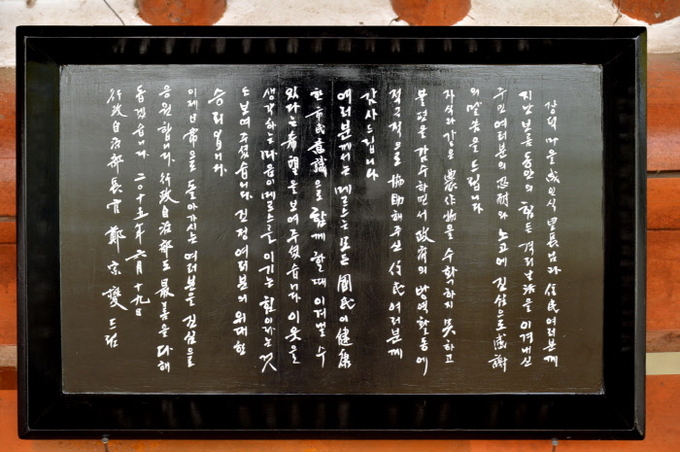 장덕마을 成인식 里長님과 住民여러분께
지난 보름동안의 힘든 격리生活을 이겨내신
주민여러분의 忍耐와 노고에 진심으로 感謝
의 말씀을 드립니다
자식과 같은 農作物을 수확하지 못하고
불편을 감수하면서 政府의 방역활동에
적극적으로 協助해주신 住民여러분께
감사드립니다
여러분께서는 메르스는 모든 國民이 健康
한 市民意識으로 함께 할때 이겨낼 수
있다는 希望을 보여주셨습니다 이웃을
생각하는 마음이 메르스를 이기는 힘이라는 것
도 보여주셨습니다. 진정 여러분의 위대한
승리입니다.
이제 日常으로 돌아가시는 여러분을 진심으로
응원합니다. 行政自治部도 最善을 다해
돕겠습니다. 二〇十五年 六月 十九日
行政自治部長官 鄭宗燮 드림